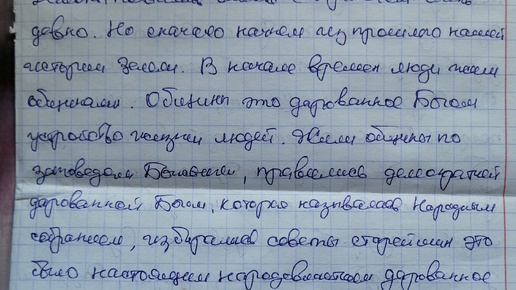 давно. Но сначало начнем из прошлого нашей
истории Земли. В начале времен люди жили
общинами. Общины это дарованное Богом
устройство жизни людей. Жили общины по
заповедям Божьими, правились демократией
дарованной Богом, которая называлась Народным
собранием, избирались советы старейшин это
было настоящим народовластием дарованное